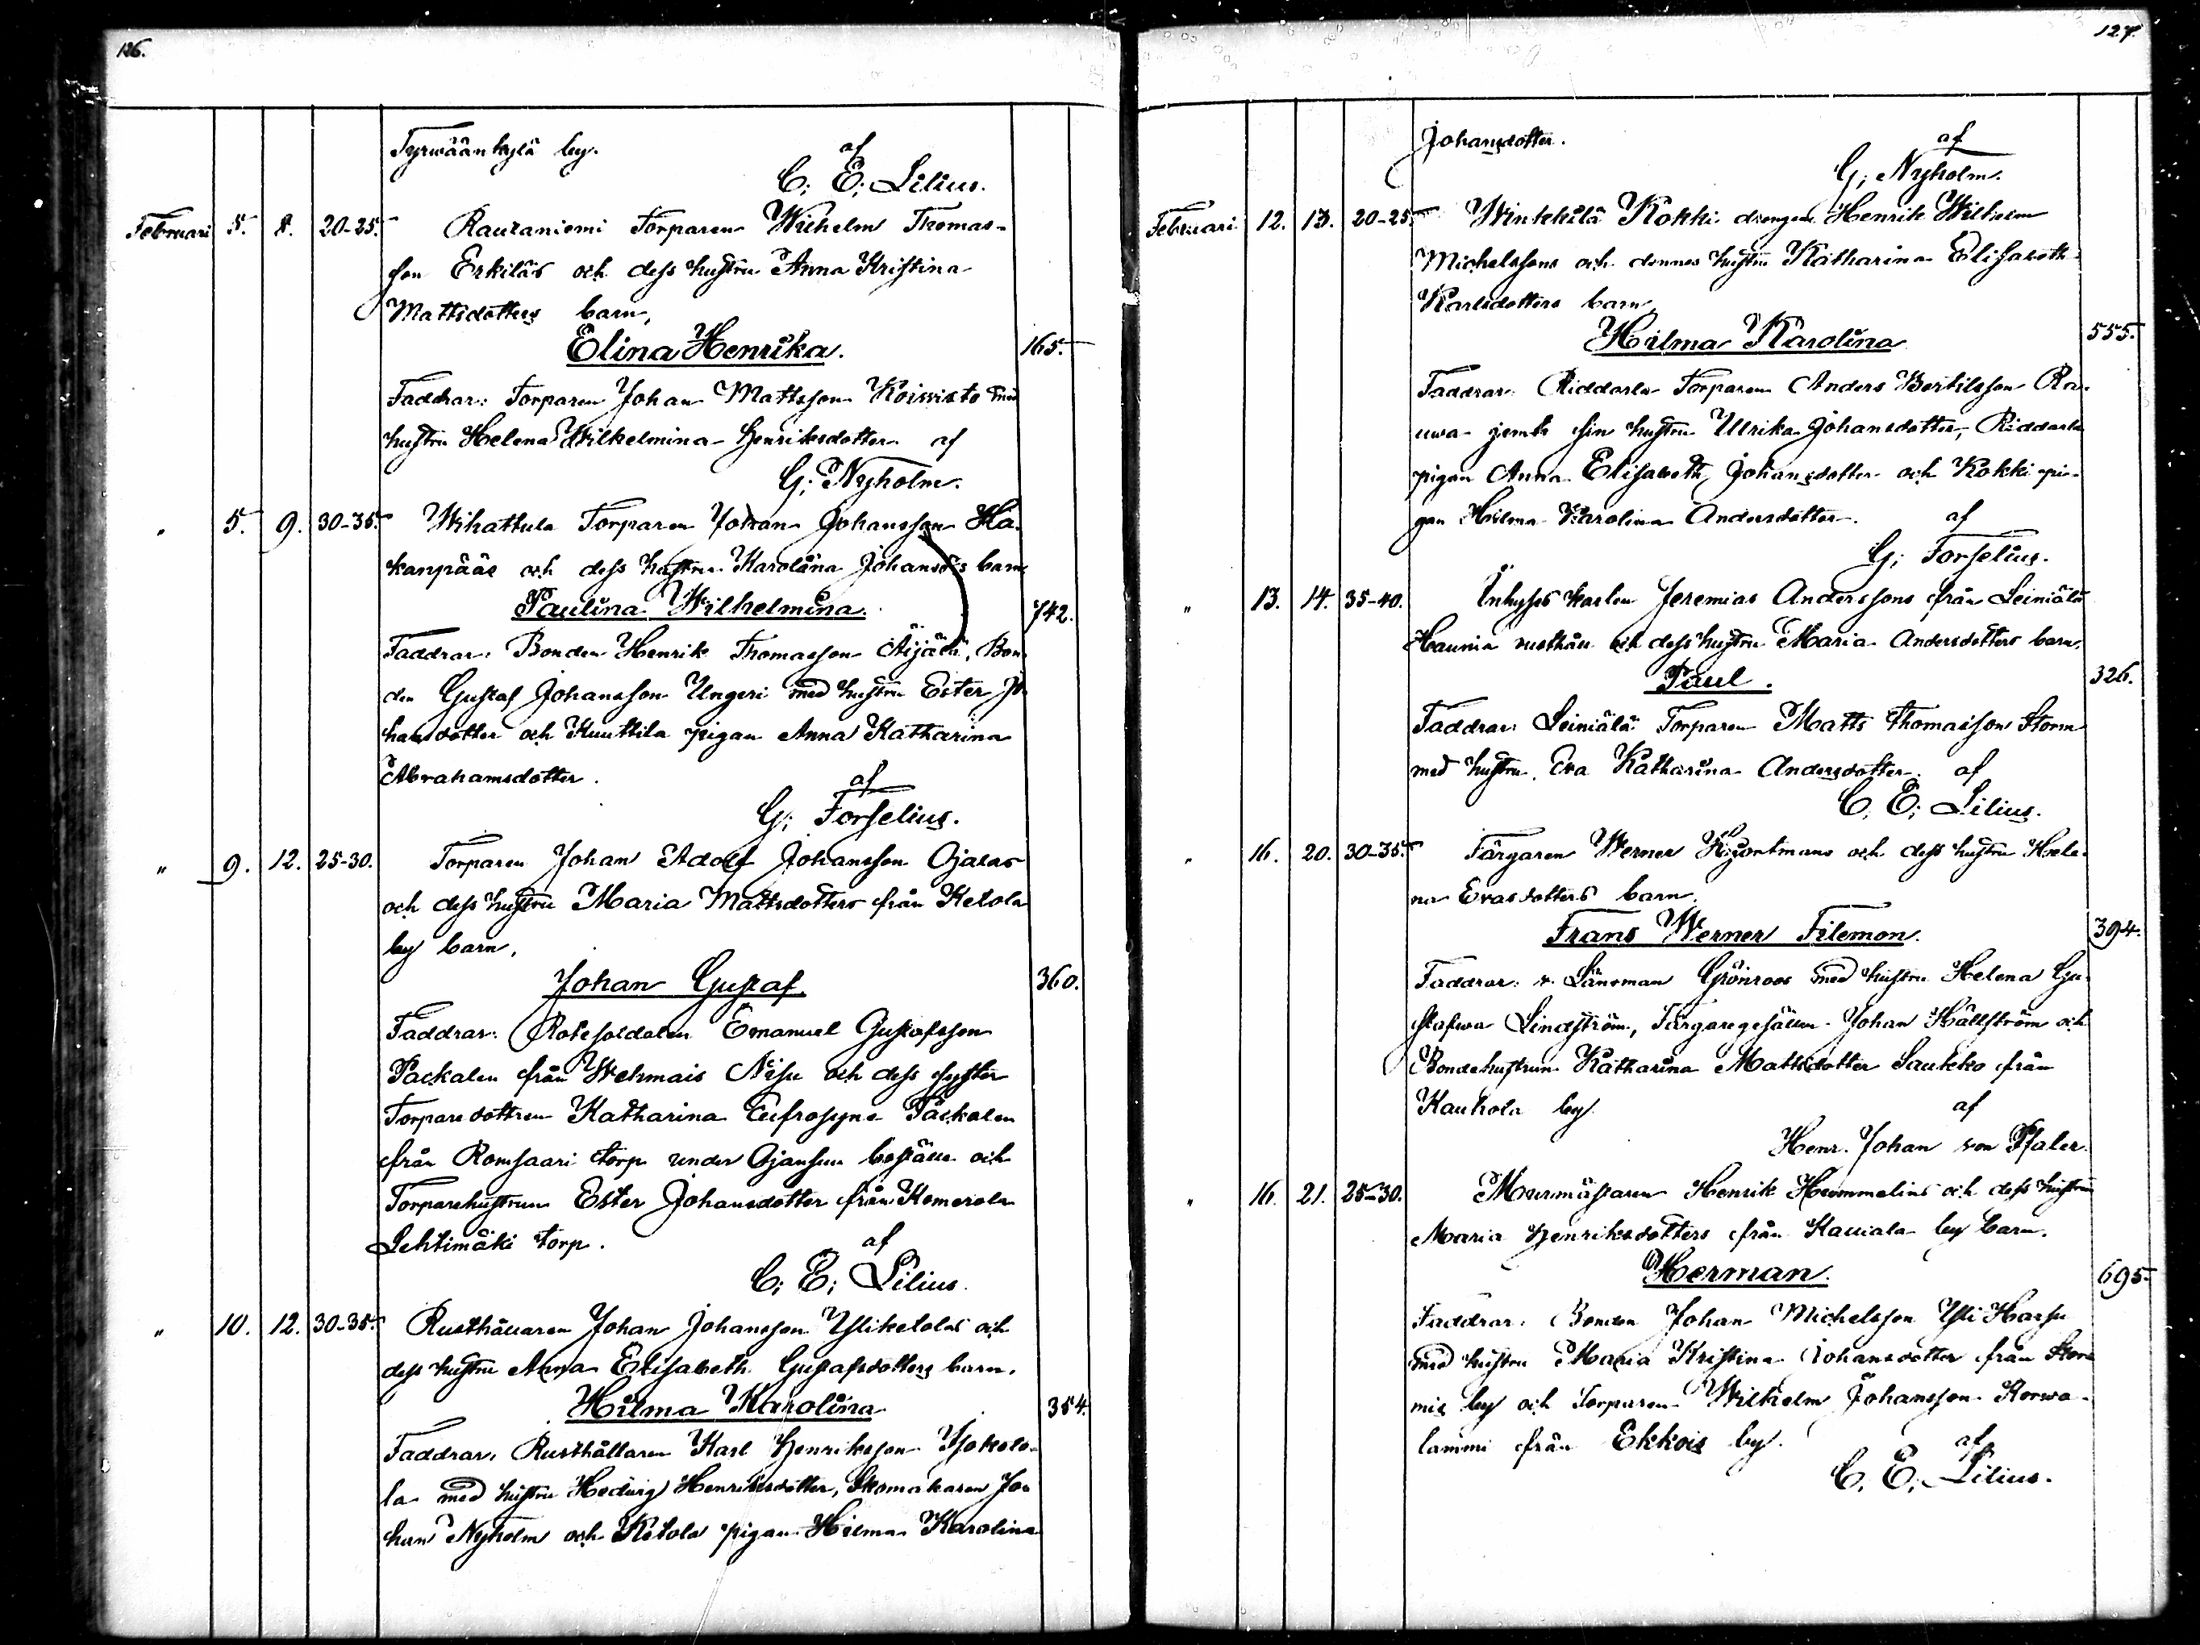 126.
Tyrwäänkylä by. af
C; E; Lilius.
Februari 5. 8. 20-25. Rautaniemi Torparen Wilhelm Thomas-
son Erkiläs och dess hustru Anna Kristina
Mattsdotters barn,
Elina Henrika. 165.
Faddrar: Torparen Johan Mattsson Koivisto med
hustru Helena Wilhelmina Henriksdotter. af
G; Nyholm.
" 5. 9. 30-35. Wihattula Torparen Johan Johansson Ha-
kanpääs och dess hustru Karolina Johansd:s barn
Paulina Wilhelmina. 742.
Faddrar: Bonden Henrik Thomasson Äijälä, Bon
den Gustaf Johansson Ungeri med hustru Ester Jo
hansdotter och Kuuttila pigan Anna Katharina
Abrahamsdotter. af
G; Forselius.
" 9. 12. 25-30. Torparen Johan Adolf Johansson Ojalas
och dess hustru Maria Mattsdotters från Ketola
by barn,
Johan Gustaf. 360.
Faddrar: Rotesoldaten Emanuel Gustafsson
Packalen från Wehmais Näsu och dess syster
Torparedottren Katharina Eufrosyne Packalen
från Romsaari torp under Ojansuu boställe och
Torparehustrun Ester Johansdotter från Komerola
Lehtimäki torp. af
C; E; Lilius.
" 10. 12. 30-35. Rusthållaren Johan Johansson Yliketolas och
dess hustru Anna Elisabeth Gustafsdotters barn.
Hilma Karolina 354.
Faddrar: Rusthållaren Karl Henriksson Isoketo-
la med hustru Hedvig Henriksdotter, Skomakaren Jo
han Nyholm och Ketola pigan Hilma Karolina
127.
Johansdotter. af
G; Nyholm.
Februari 12. 13. 20-25. Winkkilä Kokki drengen Henrik Wilhelm
Michelssons och dennes hustru Katharina Elisabeth
Karlsdotters barn,
Hilma Karolina 555.
Faddrar: Riddarla Torparen Anders Bertilsson Ra-
uwa jemte sin hustru Ulrika Johansdotter, Riddarla
pigan Anna Elisabeth Johansdotter och Kokki pi-
gan Hilma Karolina Andersdotter. af
G; Forselius.
" 13. 14. 35-40. Inhyses karlen Jeremias Anderssons från Leiniälä
Haunia rusthåll och dess hustru Maria Andersdotters barn.
Paul. 326.
Faddrar: Leiniälä Torparen Matts Thomasson Storm
med hustru Eva Katharina Andersdotter. af
C. E; Lilius.
" 16. 20. 30-35. Färgaren Werner Hjortmans och dess hustru Hele-
na Evasdotters barn.
Frans Werner Filemon. 394.
Faddrar: v. Länsman Grönroos med hustru Helena Gu-
stafwa Lindström, Färgaregesällen Johan Hällström och
Bondehustrun Katharina Mattsdotter Saukko från
Kaukola by. af
Henr. Johan von Pfaler.
" 16. 21. 25-30. Murmästaren Henrik Hummelins och dess hustru
Maria Henriksdotters från Kauiala by barn.
Herman. 695.
Faddrar: Bonden Johan Michelsson Yli Harju
med hustru Maria Kristina Johansdotter från Stor
mis by och Torparen Wilhelm Johansson Korwa-
lammi från Ekkois by. af
C. E; Lilius.